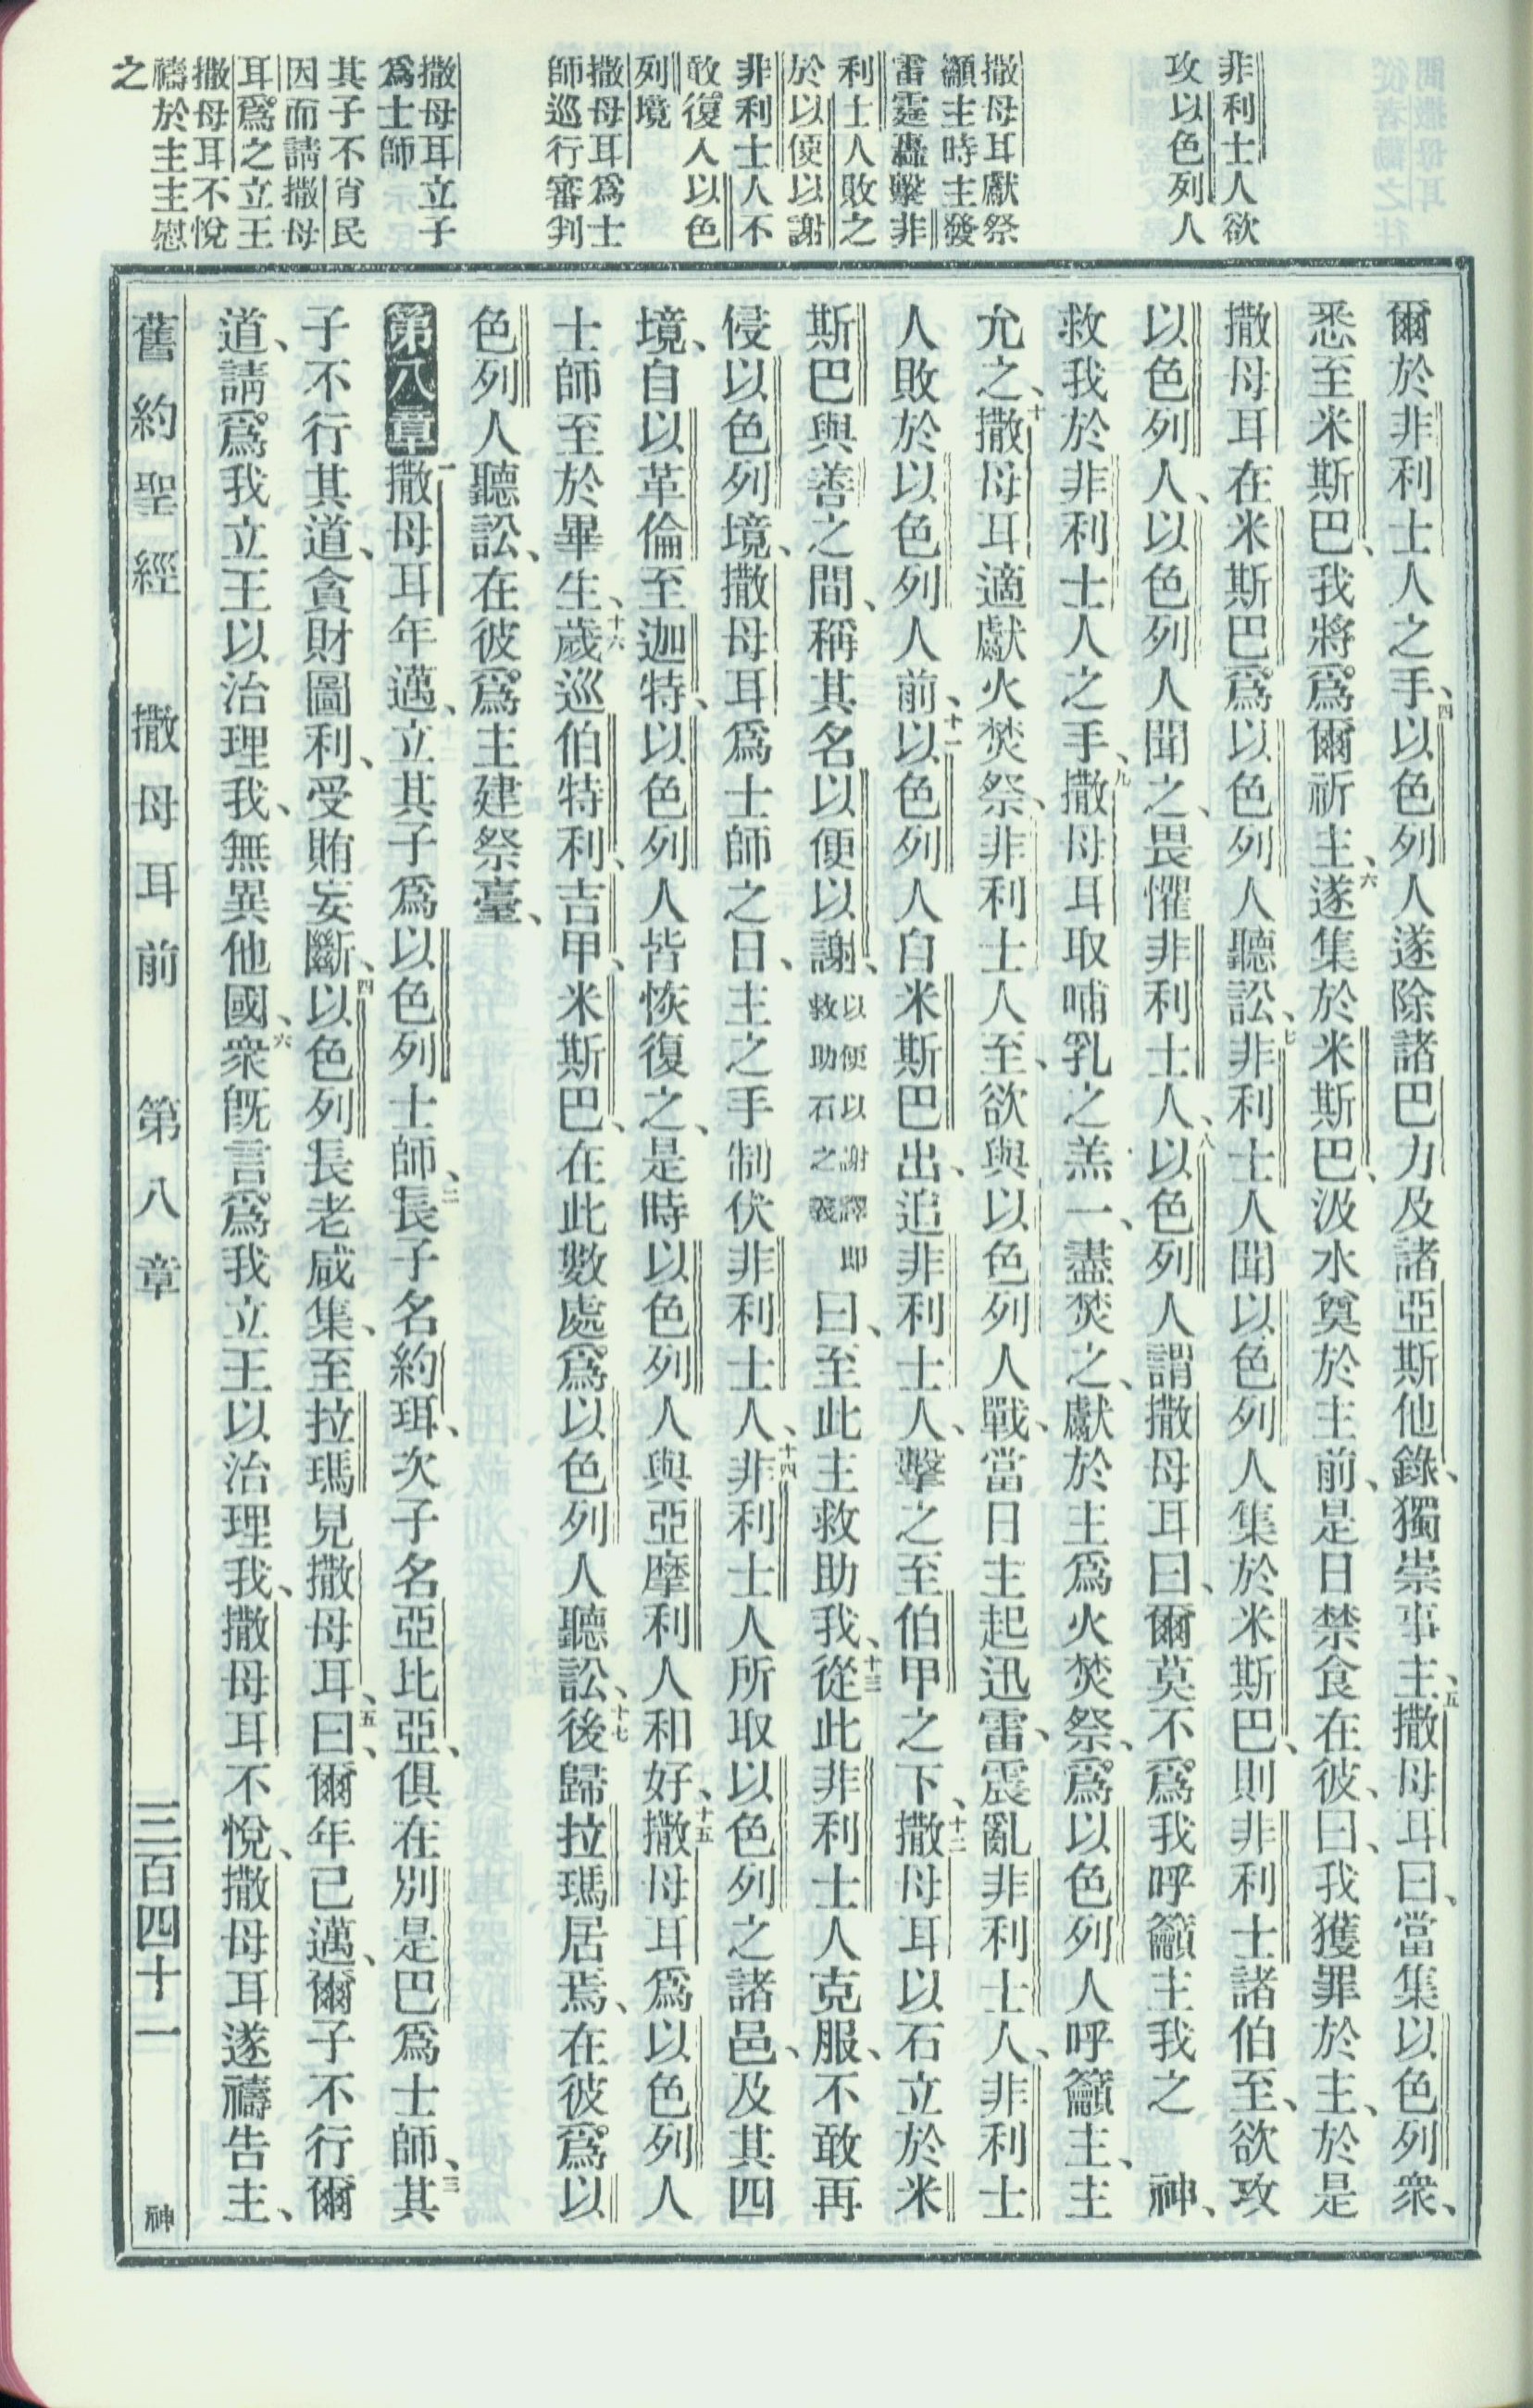 非利士人欲
攻以色列人
撒母耳獻祭
籲主時主發
雷霆轟擊非
利士人敗之
於以便以謝
非利士人不
敢復入以色
列境
撒母耳爲士
師巡行審判
撒母耳立子
爲士師
其子不肖民
因而請撒母
耳爲之立王
撒母耳不悅
禱於主主慰
之
爾於非利士人之手、四以色列人遂除諸巴力及諸亞斯他錄、獨崇事主、五撒母耳曰、當集以色列衆、
悉至米斯巴、我將爲爾祈主、六遂集於米斯巴、汲水奠於主前、是日禁食在彼、曰、我獲罪於主、於是
撒母耳在米斯巴爲以色列人聽訟、七非利士人聞以色列人集於米斯巴、則非利士諸伯至、欲攻
以色列人、以色列人聞之、畏懼非利士人、八以色列人謂撒母耳曰、爾莫不爲我呼籲主我之 神、
救我於非利士人之手、九撒母耳取哺乳之羔一、盡焚之、獻於主爲火焚祭、爲以色列人呼籲主、主
允之、十撒母耳適獻火焚祭、非利士人至、欲與以色列人戰、當日主起迅雷、震亂非利士人、非利士
人敗於以色列人前、十一以色列人自米斯巴出、追非利士人、擊之至伯甲之下、十二撒母耳以石立於米
斯巴與善之間、稱其名以便以謝、以便以謝譯即救助石之義曰、至此主救助我、十三從此非利士人克服、不敢再
侵以色列境、撒母耳爲士師之日、主之手制伏非利士人、十四非利士人所取以色列之諸邑、及其四
境、自以革倫至迦特、以色列人皆恢復之、是時以色列人與亞摩利人和好、十五撒母耳爲以色列人
士師至於畢生、十六歲巡伯特利、吉甲、米斯巴、在此數處爲以色列人聽訟、十七後歸拉瑪居焉、在彼爲以
色列人聽訟、在彼爲主建祭臺、
第八章一撒母耳年邁、立其子爲以色列士師、二長子名約珥、次子名亞比亞、俱在別是巴爲士師、三其
子不行其道、貪財圖利、受賄妄斷、四以色列長老咸集、至拉瑪見撒母耳、五曰、爾年已邁、爾子不行爾
道、請爲我立王以治理我、無異他國、六衆旣言爲我立王以治理我、撒母耳不悅、撒母耳遂禱告主、
舊約聖經 撒母耳前 第八章 三百四十一 神